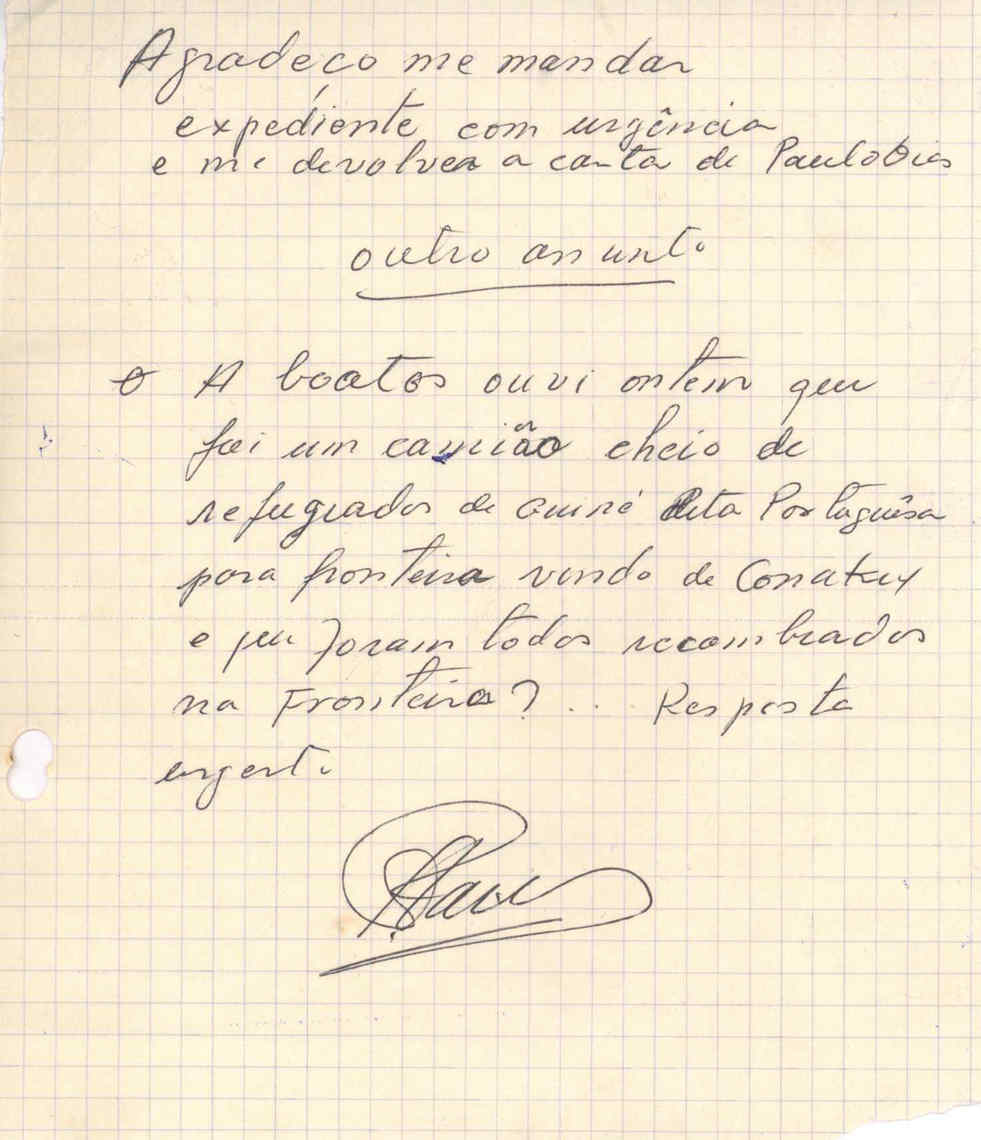 Agradeço me mandar
expediente com urgência
e me devolver a carta de Paulo Dias
outro assunto
A boatos ouvi ontem que
foi um camião cheio de
refugiados de Guiné dita Portuguêsa
para fronteira vindo de Conakry
e que foram todos recambiados
na Fronteira? ... Resposta
urgente